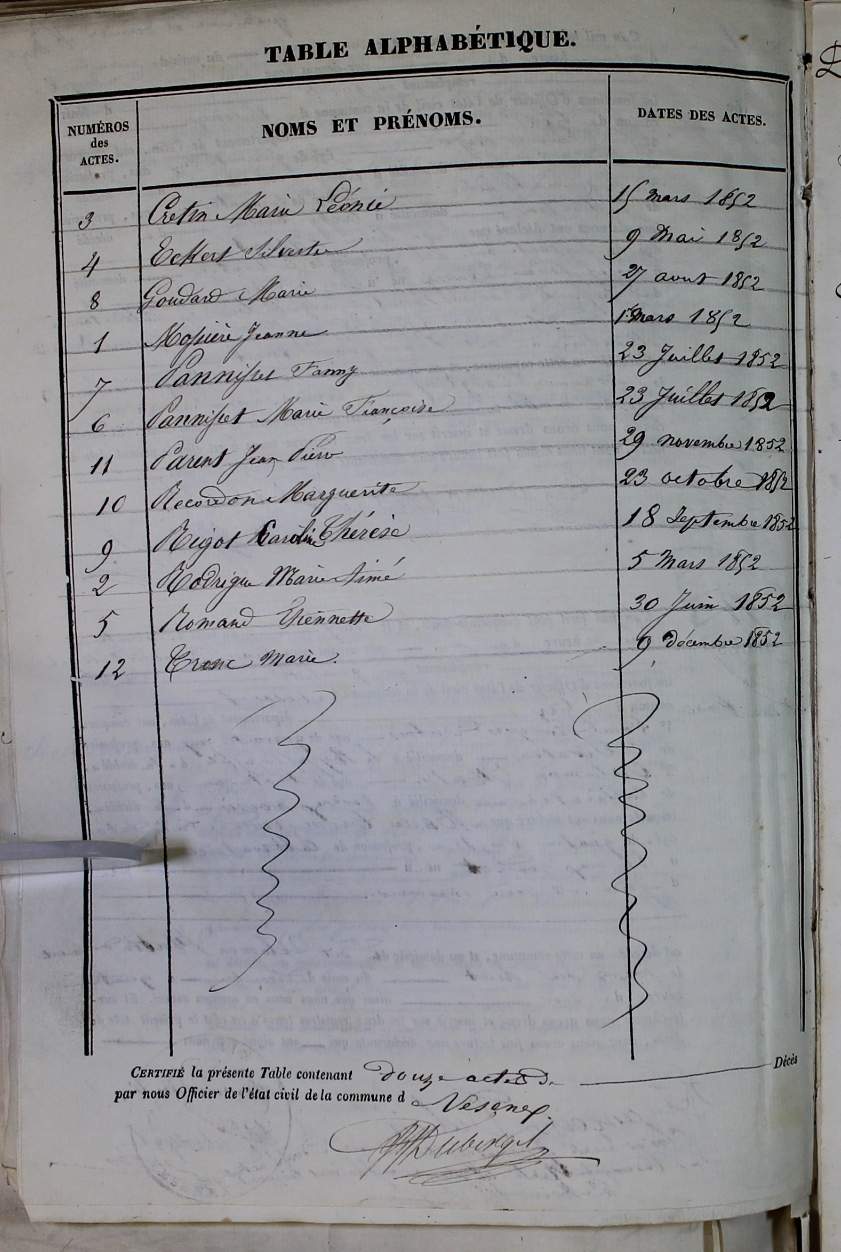 TABLE ALPHABÉTIQUE.
NUMÉROS des ACTES. NOMS ET PRÉNOMS. DATES DES ACTES.
3 Cretin Marie Léonie 15 mars 1852
4 Eckert Silvestre 9 Mai 1852
8 Goudard Marie 27 aout 1852
1 Mossière Jeanne 1er mars 1852
7 Pannisset Fanny 23 Juillet 1852
6 Pannisset Marie Françoise 23 Juillet 1852
11 Parent Jean Pierre 29 novembre 1852
10 Recordon Marguerite 23 octobre 1852
9 Rigot Caroline Thérèse 18 Septembre 1852
2 Rodrigue Marie Aimé 5 Mars 1852
5 Romand Etiennette 30 Juin 1852
12 Tronc Marie. 9 décembre 1852
CERTIFIÉ la présente Table contenant douze actes de Décès
par nous Officier de l'état civil de la commune d Vesenex.